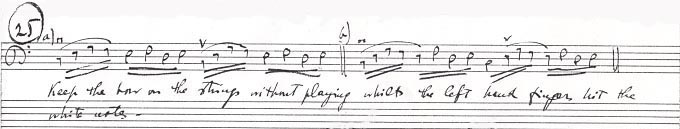 25
a) b)
Keep the bow on the strings without playing whilts the left hand fingers hit the
white notes -